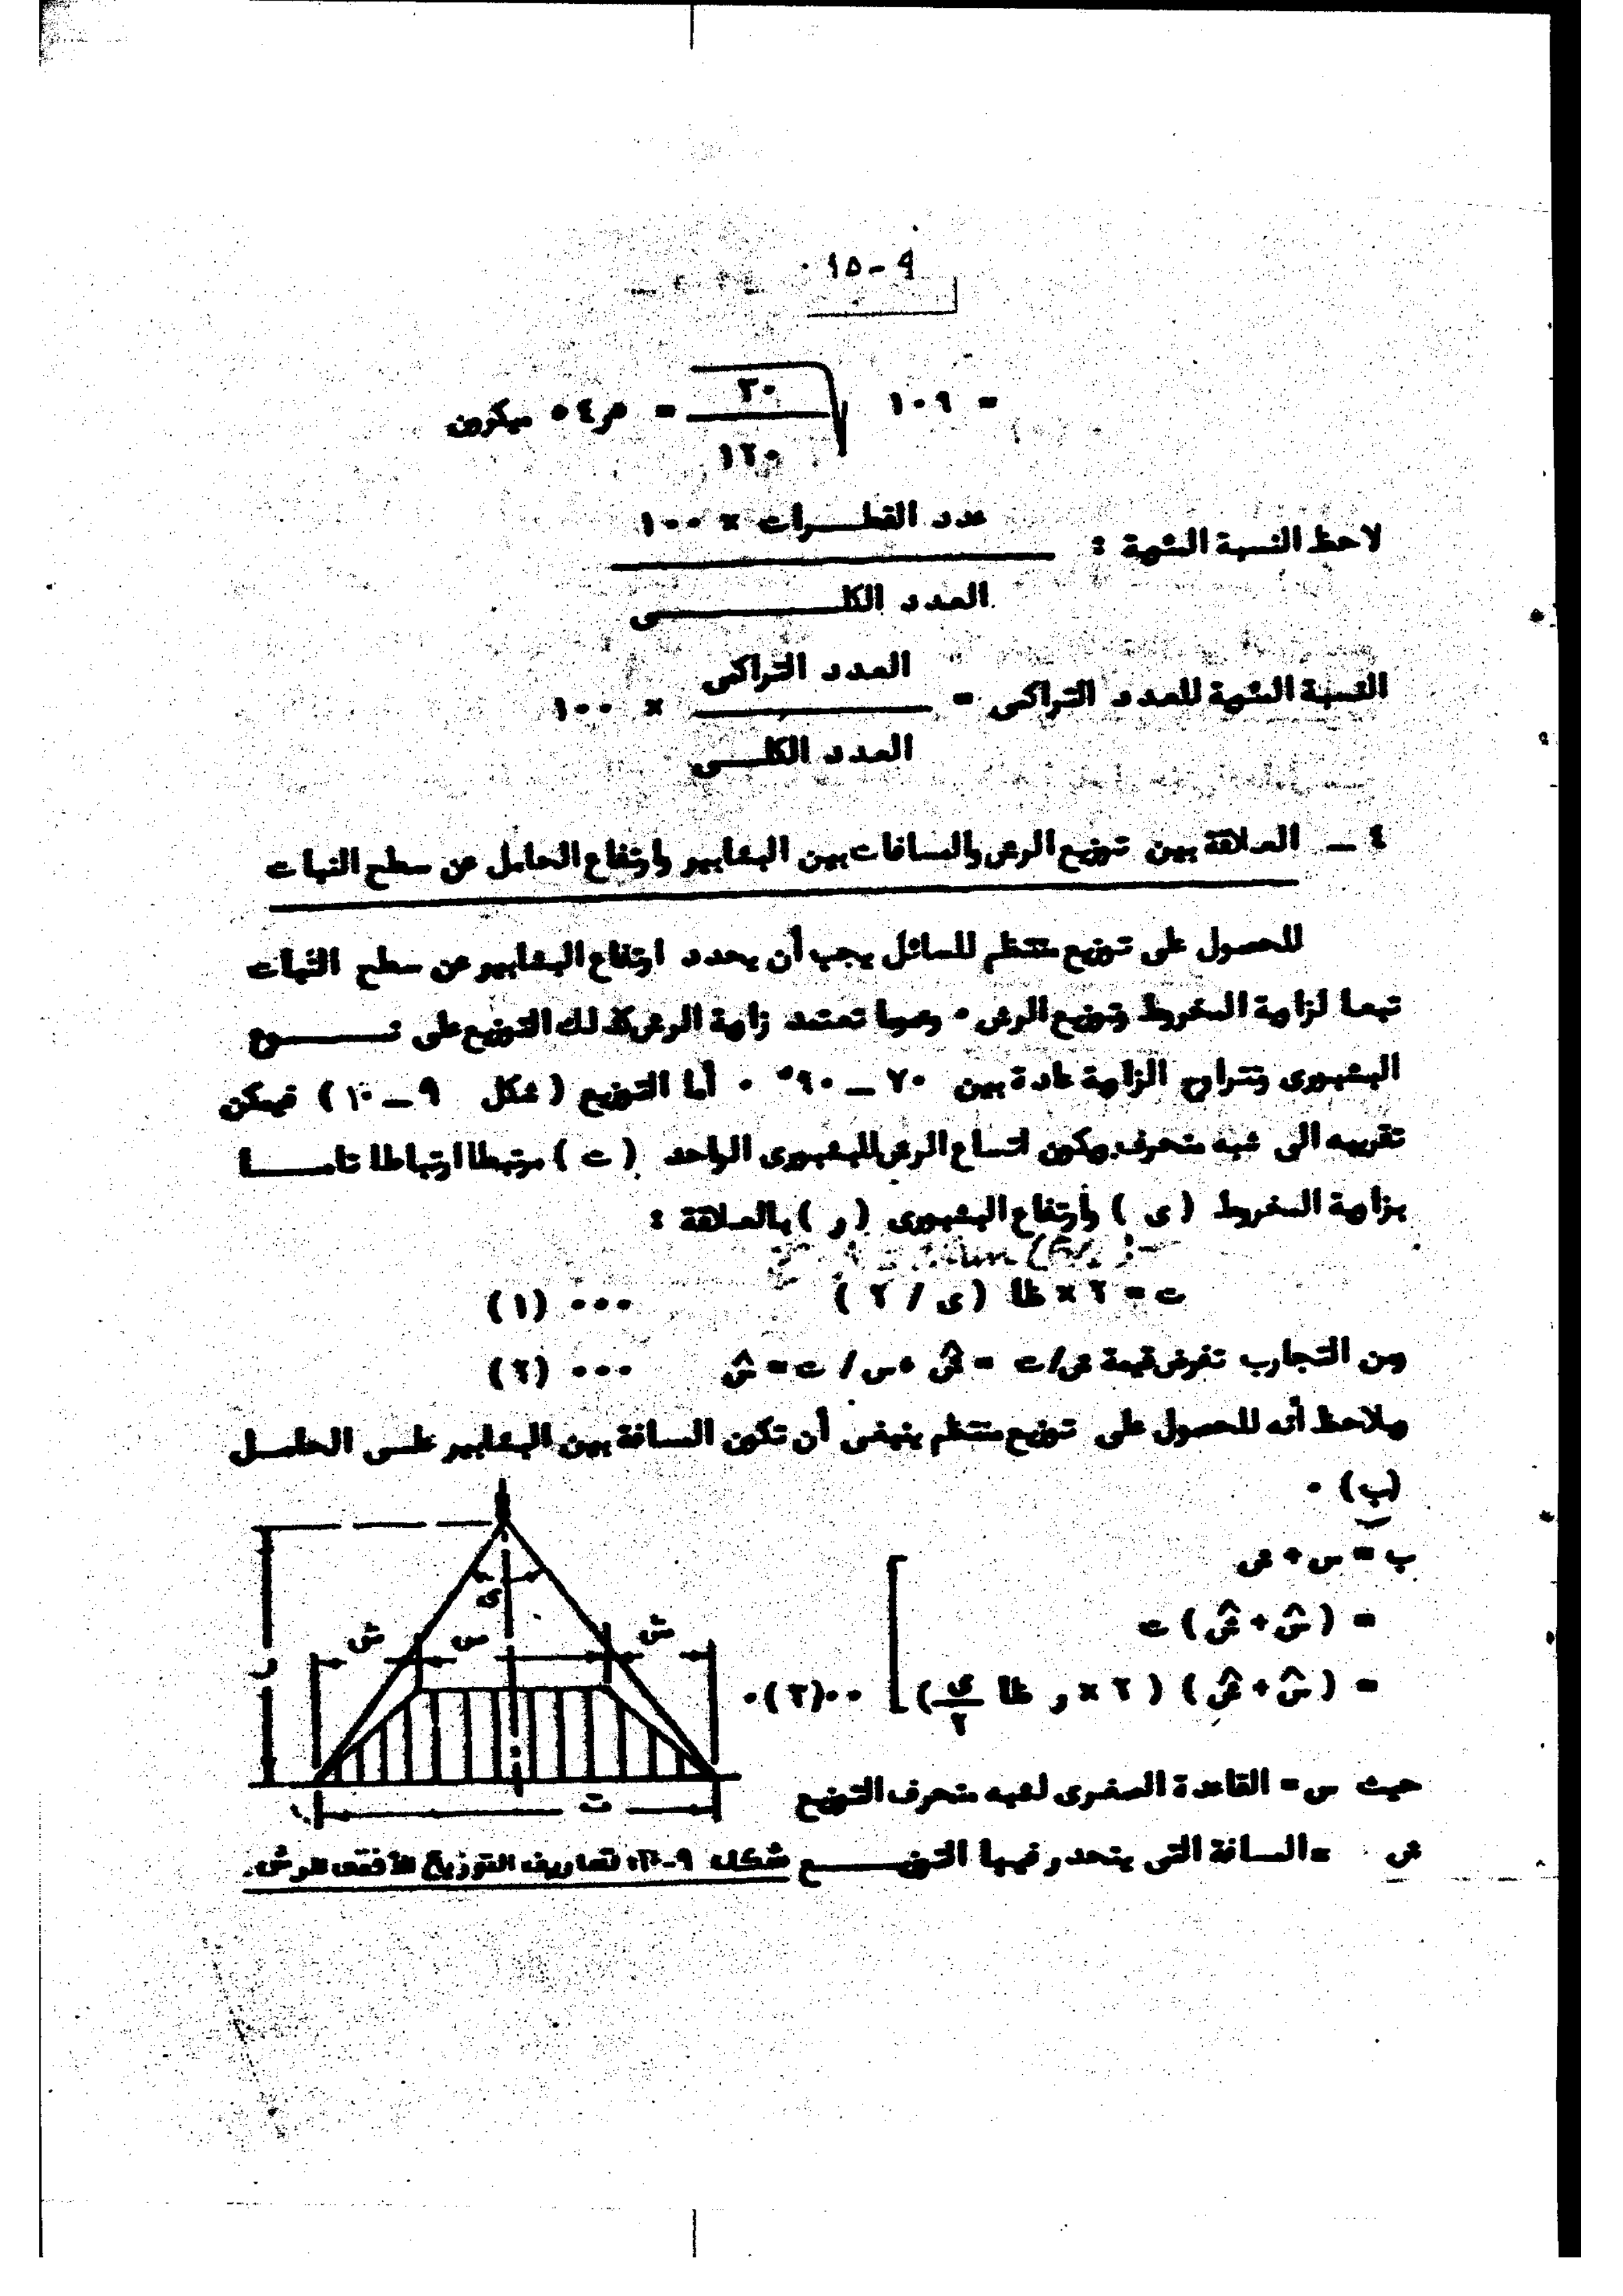 ٩-١٥
= ١٠٩ √(٣٠ / ١٢٠) = ٥ر٥٤ ميكرون
لاحظ النسبة المئوية : عدد القطرات × ١٠٠
العدد الكلى
النسبة المئوية للعدد التراكمى = العدد التراكمى × ١٠٠
العدد الكلى
٤ – العلاقة بين توزيع الرش والمسافات بين البشابير وارتفاع الحامل عن سطح النبات
للحصول على توزيع منتظم للسائل يجب أن يحدد ارتفاع البشابير عن سطح النبات
تبعا لزاوية المخروط وتوزيع الرش ٠ وعموما تعتمد زاوية الرش كذلك التوزيع على نوع
البشبورى وتتراوح الزاوية عادة بين ٧٠ – ٩٠° ٠ أما التوزيع ( شكل ٩ – ١٠ ) فيمكن
تقريبه الى شبه منحرف ويكون اتساع الرش للبشبورى الواحد ( ت ) مرتبطا ارتباطا تاما
بزاوية المخروط ( ى ) وارتفاع البشبورى ( ر ) بالعلاقة :
ت = ٢ × ظا ( ى / ٢ ) ٠٠٠ (١)
ومن التجارب تفرض قيمة ش/ت = ش̂ ، س / ت = س̂ ٠٠٠ (٢)
ويلاحظ أنه للحصول على توزيع منتظم ينبغى أن تكون المسافة بين البشابير على الحامل
(ب) ٠
ب = س + ش
= ( س̂ + ش̂ ) ت
= ( س̂ + ش̂ ) ( ٢ × ر ظا ى/٢ ) ٠٠(٣)٠
ى
ش س ش
ر
ت
حيث س = القاعدة الصغرى لشبه منحرف التوزيع
ش = المسافة التى ينحدر فيها التوزيع
شكل ٩-١٠: تعاريف التوزيع الأفقى للرش.